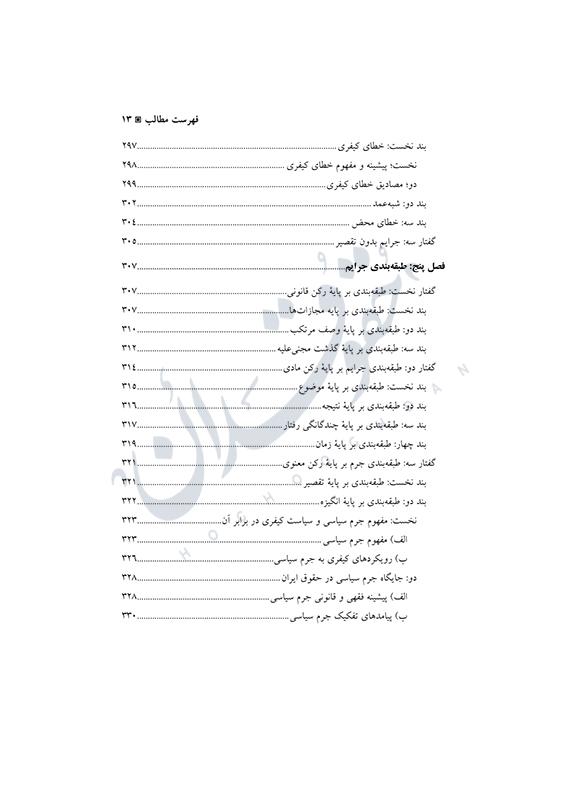 فهرست مطالب ▣ ۱۳
بند نخست: خطای کیفری ۲۹۷
نخست؛ پیشینه و مفهوم خطای کیفری ۲۹۸
دو؛ مصادیق خطای کیفری ۲۹۹
بند دو: شبه‌عمد ۳۰۲
بند سه: خطای محض ۳۰٤
گفتار سه: جرایم بدون تقصیر ۳۰۵
فصل پنج: طبقه‌بندی جرایم ۳۰۷
گفتار نخست: طبقه‌بندی بر پایۀ رکن قانونی ۳۰۷
بند نخست: طبقه‌بندی بر پایه مجازات‌ها ۳۰۷
بند دو: طبقه‌بندی بر پایۀ وصف مرتکب ۳۱۰
بند سه: طبقه‌بندی بر پایۀ گذشت مجنی‌علیه ۳۱۲
گفتار دو: طبقه‌بندی جرایم بر پایۀ رکن مادی ۳۱٤
بند نخست: طبقه‌بندی بر پایۀ موضوع ۳۱۵
بند دو: طبقه‌بندی بر پایۀ نتیجه ۳۱٦
بند سه: طبقه‌بندی بر پایۀ چندگانگی رفتار ۳۱۷
بند چهار: طبقه‌بندی بر پایۀ زمان ۳۱۹
گفتار سه: طبقه‌بندی جرم بر پایۀ رکن معنوی ۳۲۱
بند نخست: طبقه‌بندی بر پایۀ تقصیر ۳۲۱
بند دو: طبقه‌بندی بر پایۀ انگیزه ۳۲۲
نخست: مفهوم جرم سیاسی و سیاست کیفری در برابر آن ۳۲۳
الف) مفهوم جرم سیاسی ۳۲۳
ب) رویکردهای کیفری به جرم سیاسی ۳۲٦
دو: جایگاه جرم سیاسی در حقوق ایران ۳۲۸
الف) پیشینه فقهی و قانونی جرم سیاسی ۳۲۸
ب) پیامدهای تفکیک جرم سیاسی ۳۳۰